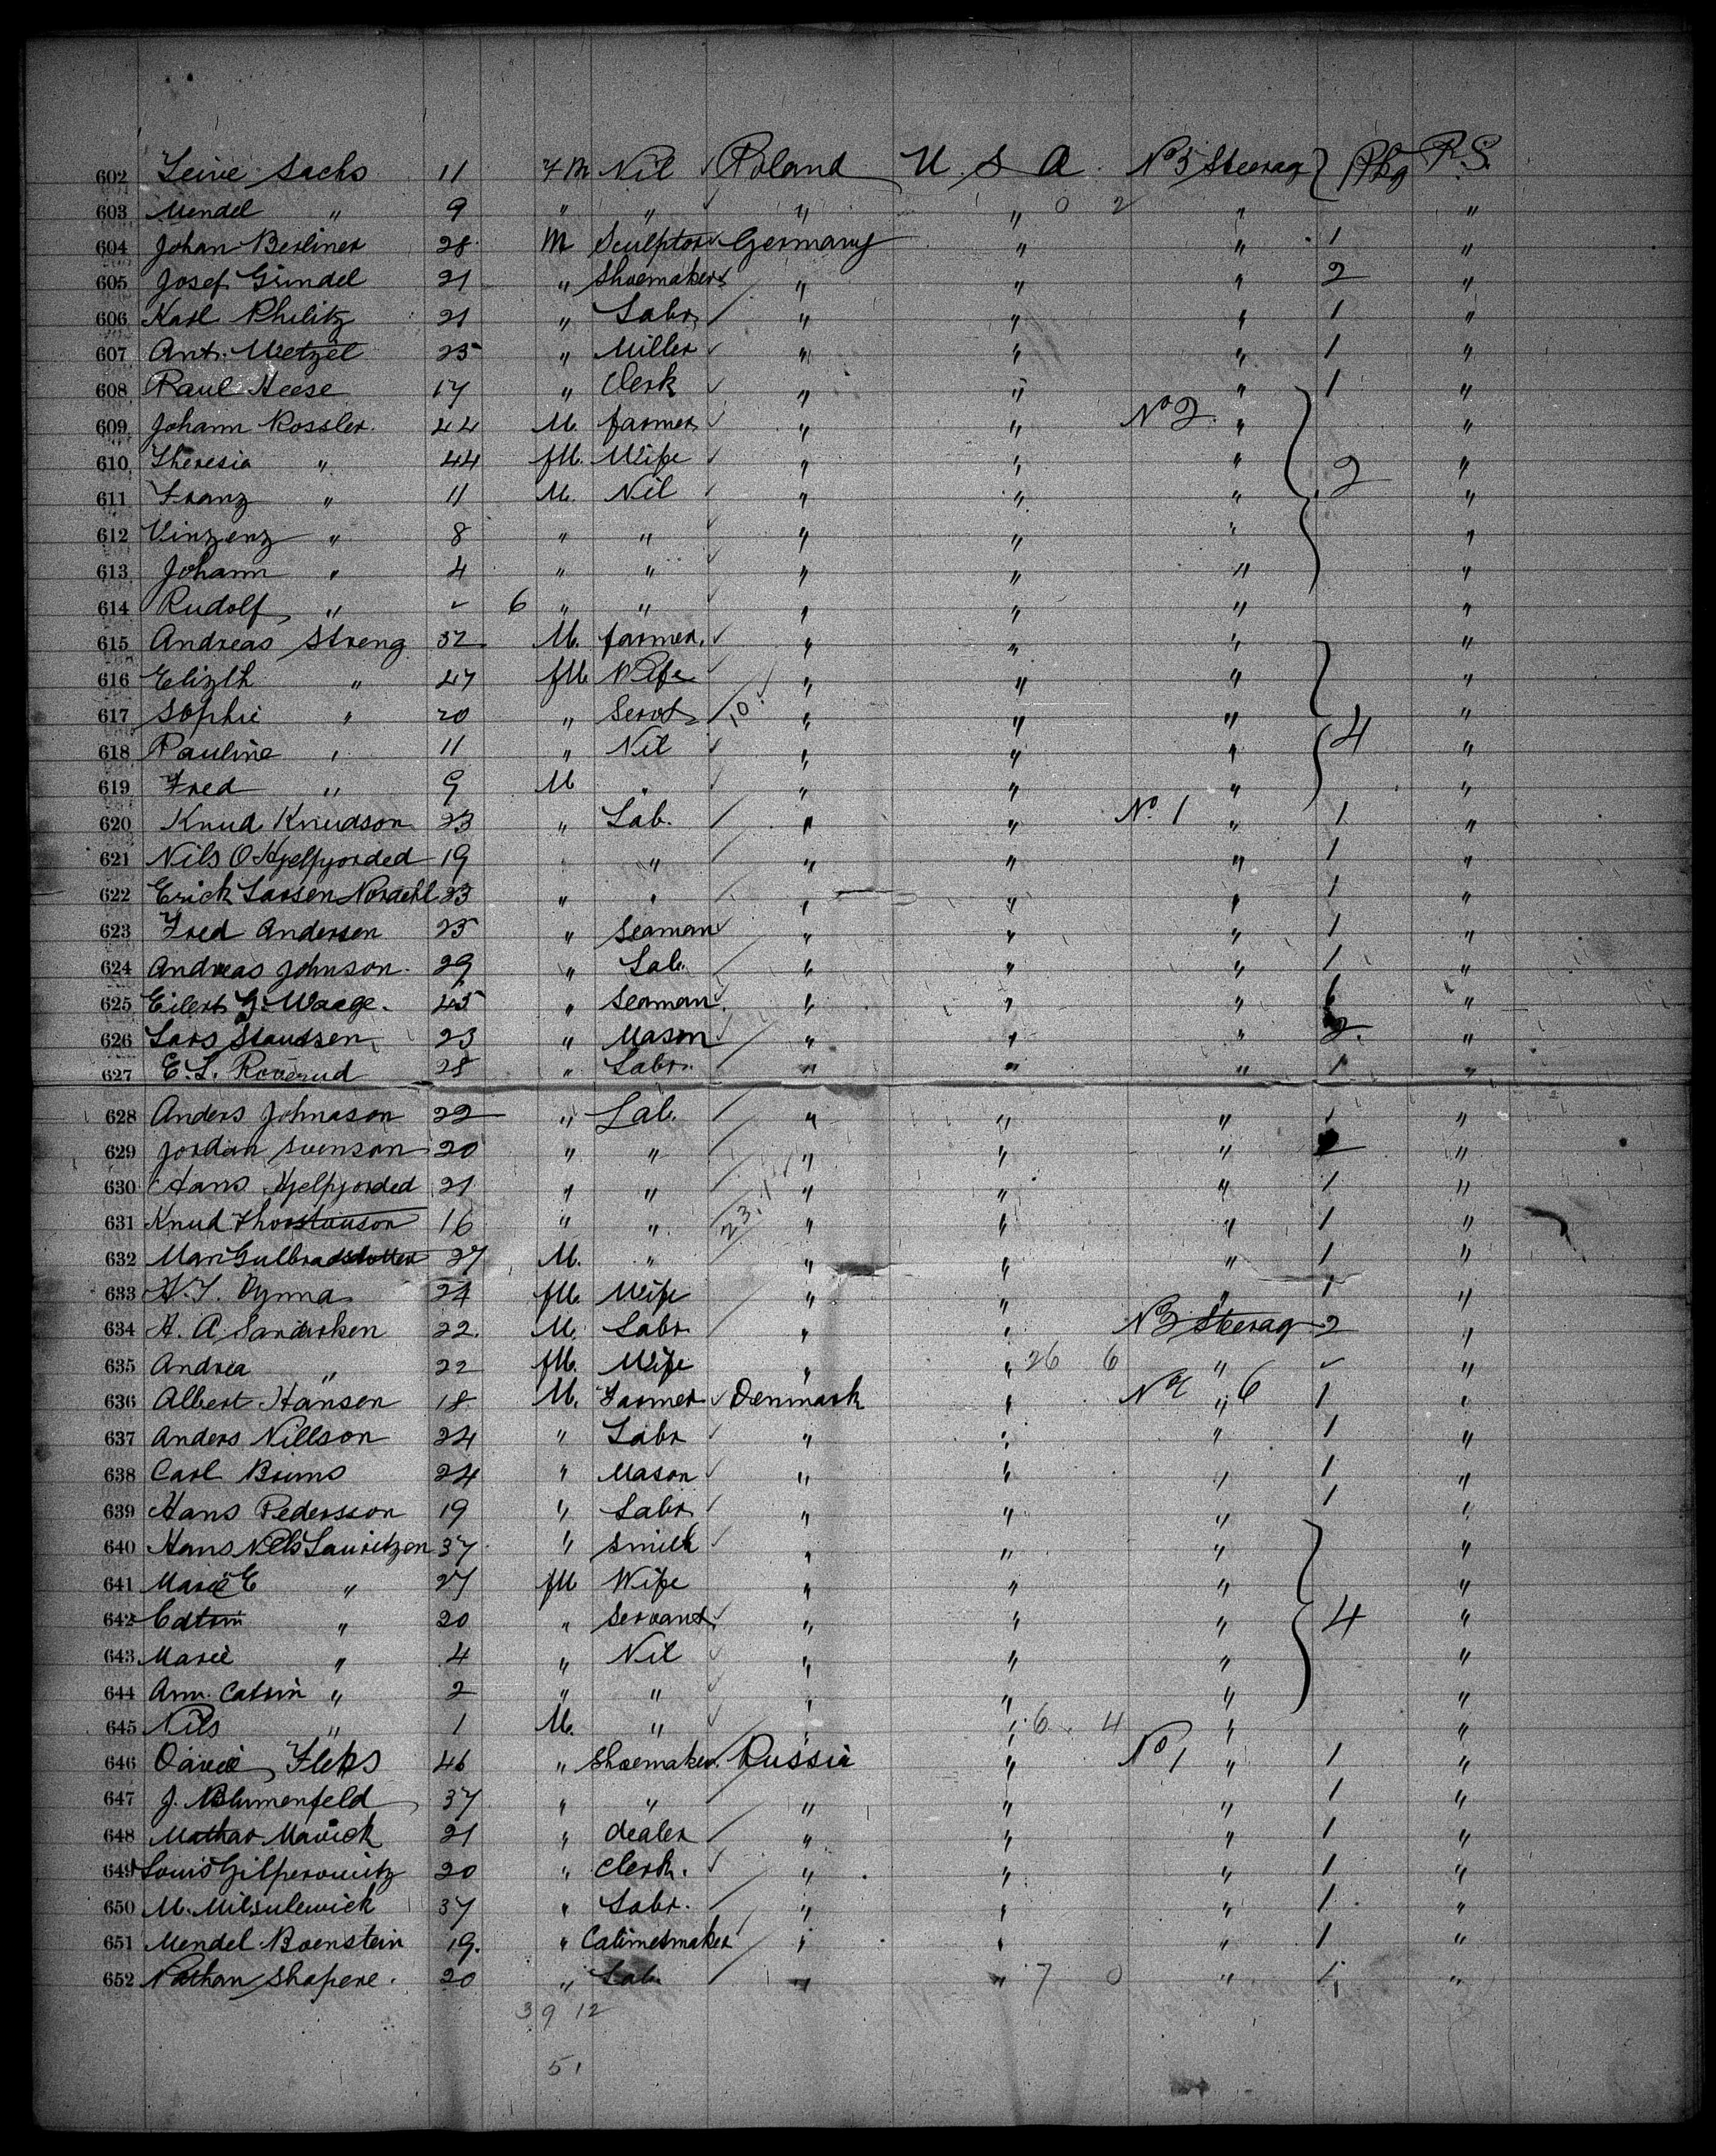 602 Leine Sachs 11 F M Nil ✓ Poland U. S. A. No 3 Steerag } Pkg P. S.
603 Mendel " 9 " " ✓ " " 0 2 " "
604 Johan Berliner 28 M Sculptor ✓ Germany " " 1 "
605 Josef Grindel 21 " Shoemaker " " " 2 "
606 Karl Philitz 21 " Labr / " " " 1 "
607 Ant. Wetzel 25 " Miller ✓ " " " 1 "
608 Paul Heese 17 " Clerk ✓ " " " 1 "
609 Johann Rossler 44 M. farmer ✓ " " No 2 " "
610 Theresia " 44 fM. Wife ✓ " " " 2 "
611 Franz " 11 M. Nil ✓ " " " "
612 Vinzenz " 8 " " ✓ " " " "
613 Johann " 4 " " ✓ " " " "
614 Rudolf " ✓ 6 " " ✓ " " " "
615 Andreas Streng 52 M. farmer. ✓ " " " "
616 Elizth " 47 fM Wife ✓ " " " "
617 Sophie " 20 " Servt / 10. ✓ " " " "
618 Pauline " 11 " Nil ✓ " " " 4 "
619 Fred " 9 M " ✓ " " " "
620 Knud Knudson 23 " Lab. / " " No 1 " 1 "
621 Nils O Hjelfjorded 19 " / " " " 1 "
622 Erick Larsen Nordehl 23 " " / " " " 1 "
623 Fred Andersen 25 " Seaman ✓ " " " 1 "
624 Andreas Johnson 29 " Lab. / " " " 1 "
625 Eilert G. Waage. 45 " Seaman. " " " "
626 Lars Staussen 23 " Mason / " " " 2 "
627 E. L. Roverud 28 " Labr. " " " 1 "
628 Anders Johnason 22 " Lab. / " " " 1 "
629 Jordan Svenson 20 " " / " " " 2 "
630 Hans Hjelfjorded 21 " " / " " " 1 "
631 Knud Thorstanson 16 " " / 23. " " " 1 "
632 Mari Gulbradsdotter 27 M. " " " " 1 "
633 H. T. Dynna 24 fM. Wife / " " " 1 "
634 H. A. Sandirken 22. M. Labr " " No 2 Steerag 2 "
635 Andrea " 22 fM. Wife " " 26 6 " ✓ "
636 Albert Hansen 18 M. Farmer ✓ Denmark " " 6 1 "
637 Anders Nillson 24 " Labr ✓ " " " 1 "
638 Carl Bruns 24 " Mason ✓ " " " 1 "
639 Hans Pedersson 19 " Labr ✓ " " " 1 "
640 Hans Nels Lauritzen 37 " Smith ✓ " " " "
641 Marie E " 27 fM Wife " " " "
642 Catrin " 20 " Servant ✓ " " " 4 "
643 Marie " 4 " Nil ✓ " " " "
644 Ann. Catrin " 2 " " ✓ " " " "
645 Nils " 1 M. " ✓ " " 6 4 " "
646 46 " Shoemaker. / Russia " No 1 " 1 "
647 J. Blumenfeld 37 " " / " " " 1 "
648 Mathas Mavick 21 " dealer / " " " 1 "
649 Louis Gilperowitz 20 " Clerk. ✓ " " " 1 "
650 M. Milsulewick 37 " Labr. / " " " 1 "
651 Mendel Boenstein 19. " Cabinetmaker / " " " 1 "
652 Nathan Shapere. 20 " Lab. / " " 7 0 " 1 "
39 12
51